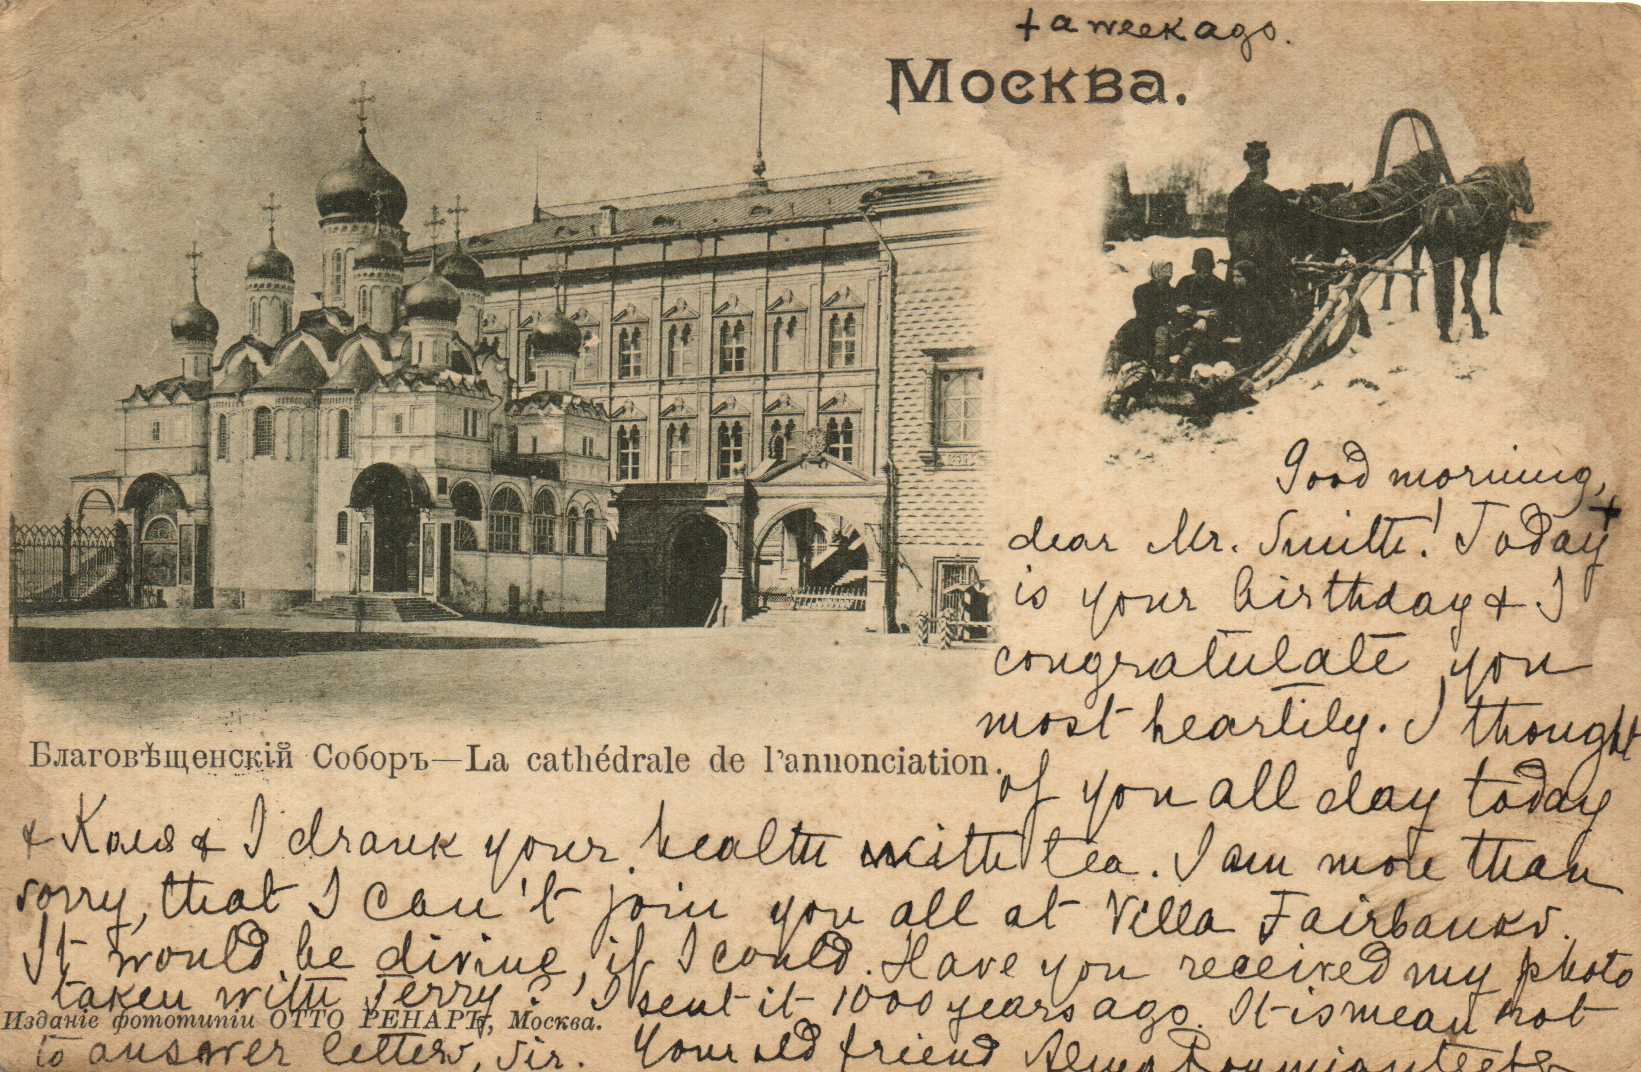 + a week ago.
Москва.
Good morning,
dear Mr. Smith! Today +
is your birthday & I
congratulate you
most heartily. I thought
Благовѣщенскій Соборъ—La cathédrale de l'annonciation.
of you all day today
& Коля & I drank your health with tea. I am more than
sorry, that I can't join you all at Villa Fairbanks.
It would be divine, if I could. Have you received my photo
taken with Jerry? I sent it 1000 years ago. It is mean not
Изданіе фототипіи ОТТО РЕНАРЪ, Москва.
to answer letters, Sir. Your old friend